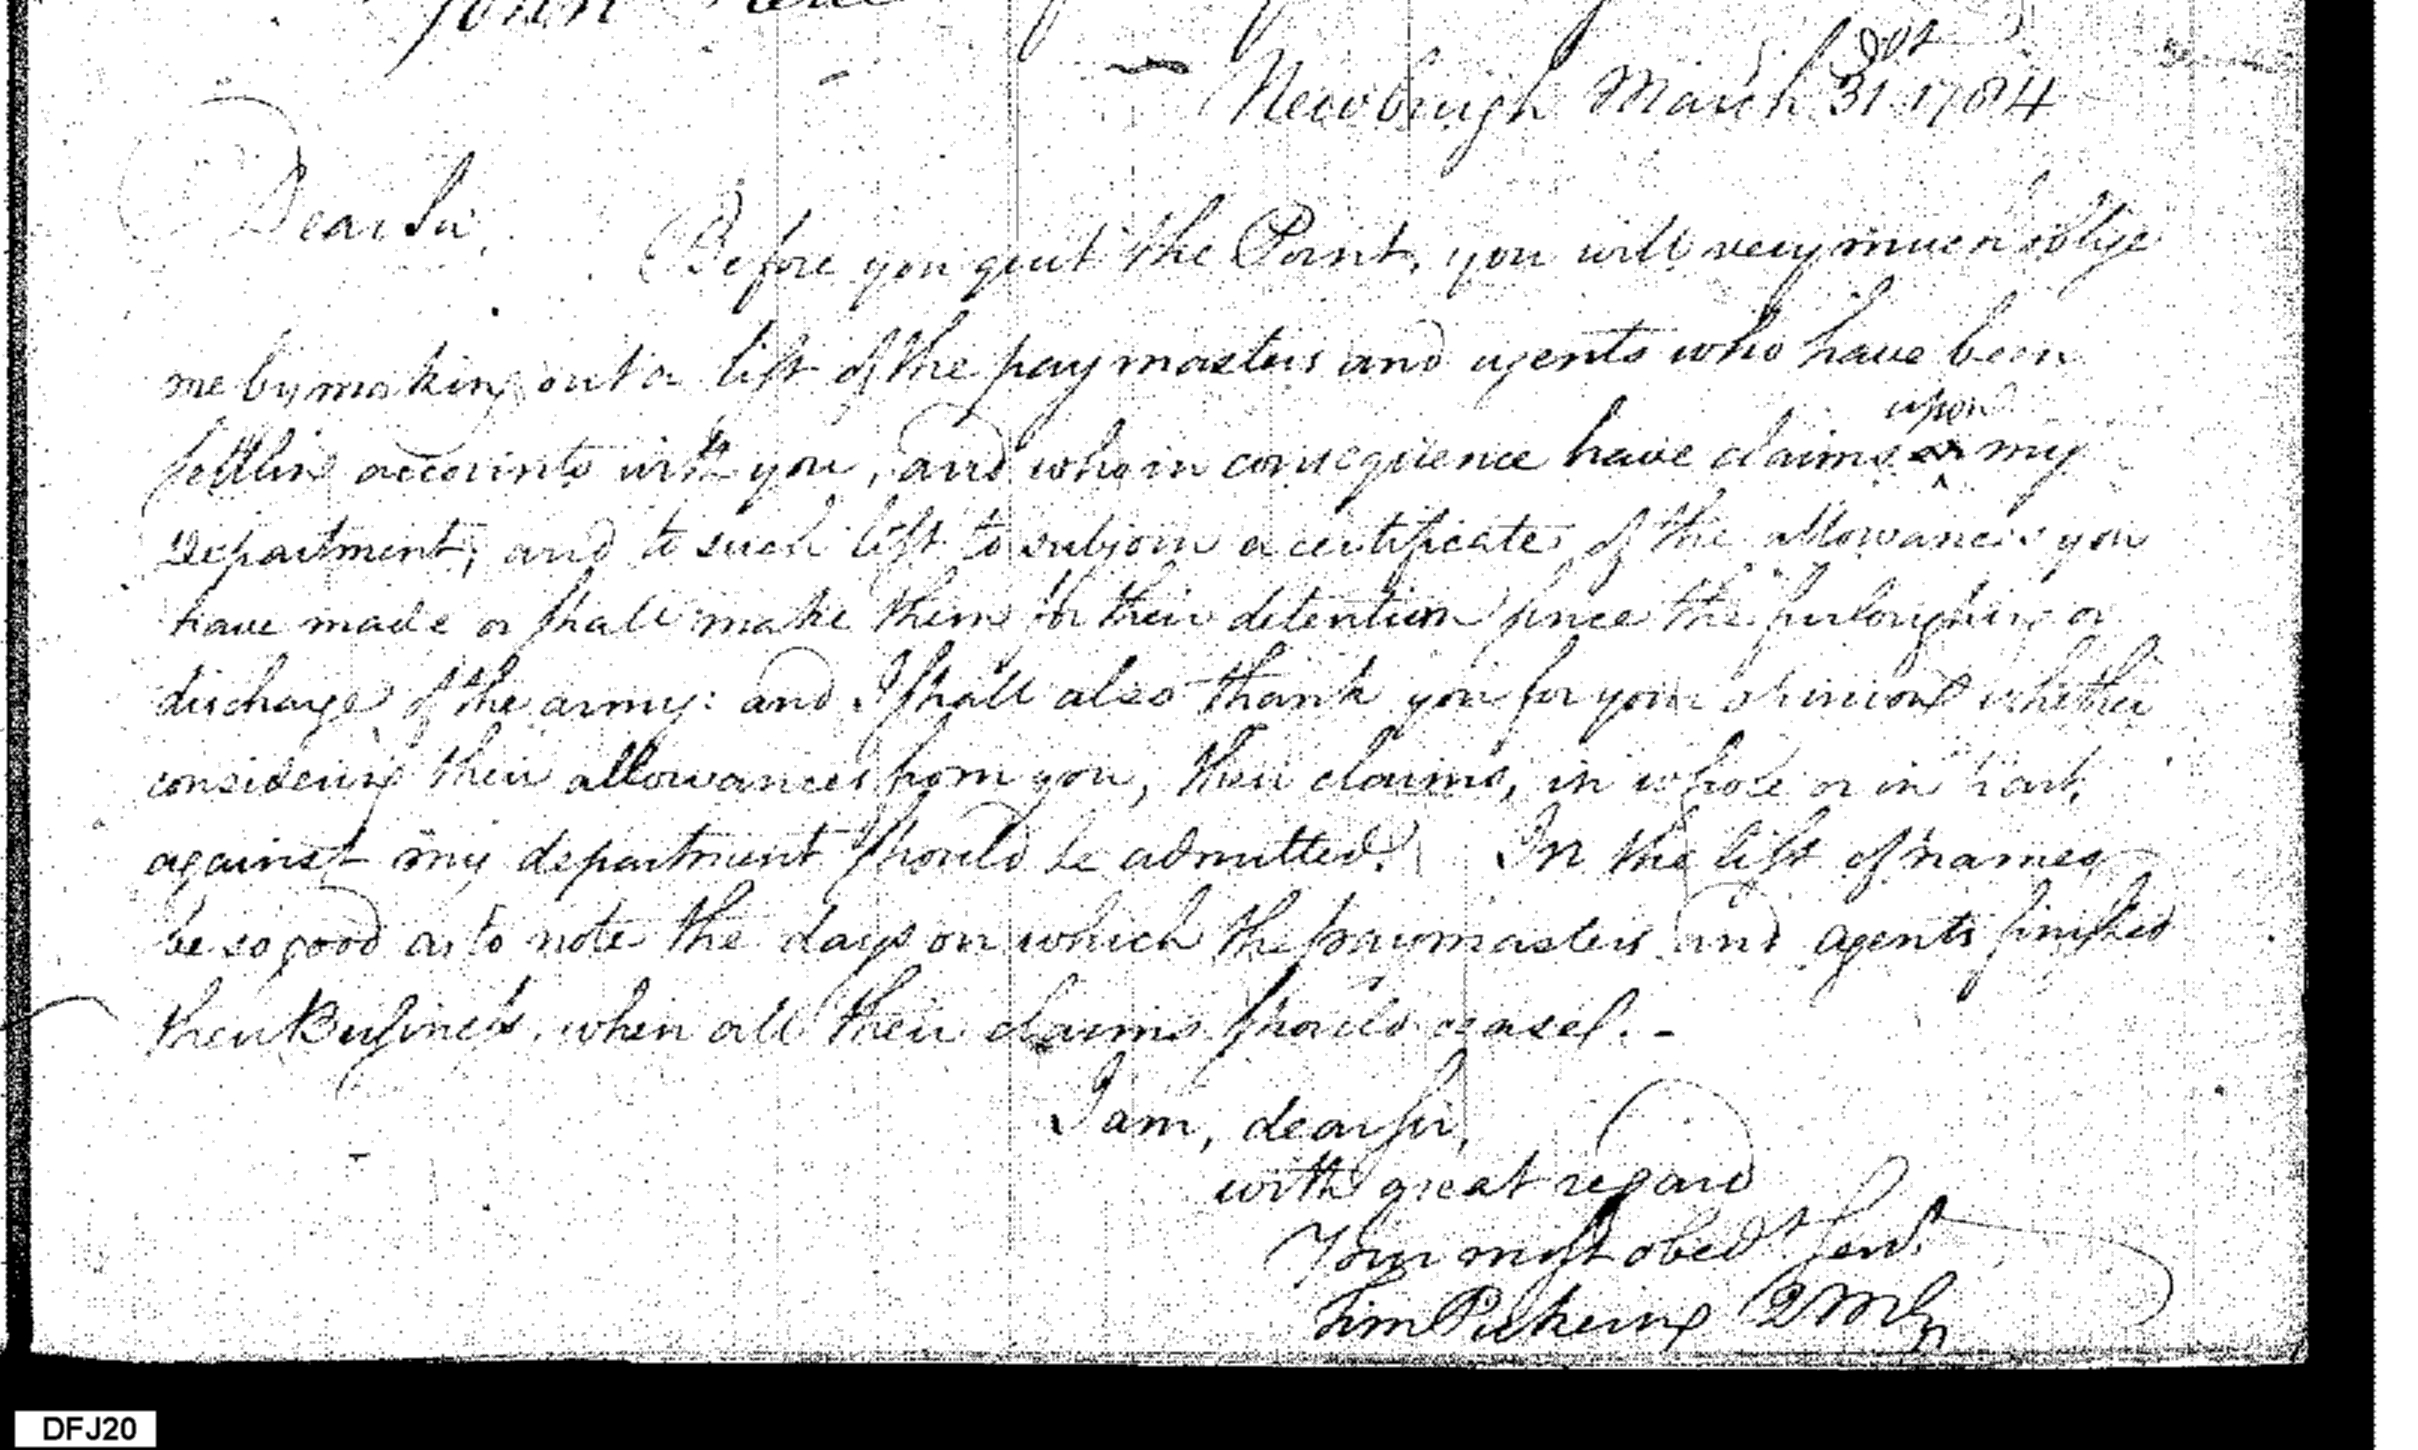 John
Newburgh March 31st 1784
Dear Sir,
Before you quit the Point, you will very much oblige
me by making out a list of the paymasters and agents who have been
settling accounts with you, and who in consequence have claims upon my
Department; and to such list to subjoin a certificate of the allowances you
have made or shall make them for their detention since the furloughing or
discharge of the army: and I shall also thank you for your opinion whether
considering their allowances from you, their claims, in whole or in part,
against my department should be admitted. In the list of names
be so good as to note the days on which the paymasters and agents finished
their Business, when all their claims should cease. -
I am, dear sir,
with great regard
Your most obedt servt.
Tim Pickering QMG
DFJ20